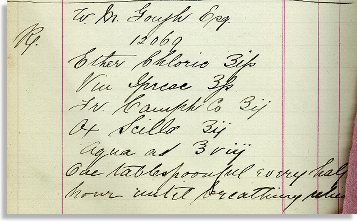 W Dr. Gough Esq
12069
Rp.
Ether Chloric ʒifs
Vin Ipecac ʒfs
Tr Camph Co ʒij
Ox Scillo ʒij
Aqua ad ℥viij
One tablespoonful every half
hour until breathing